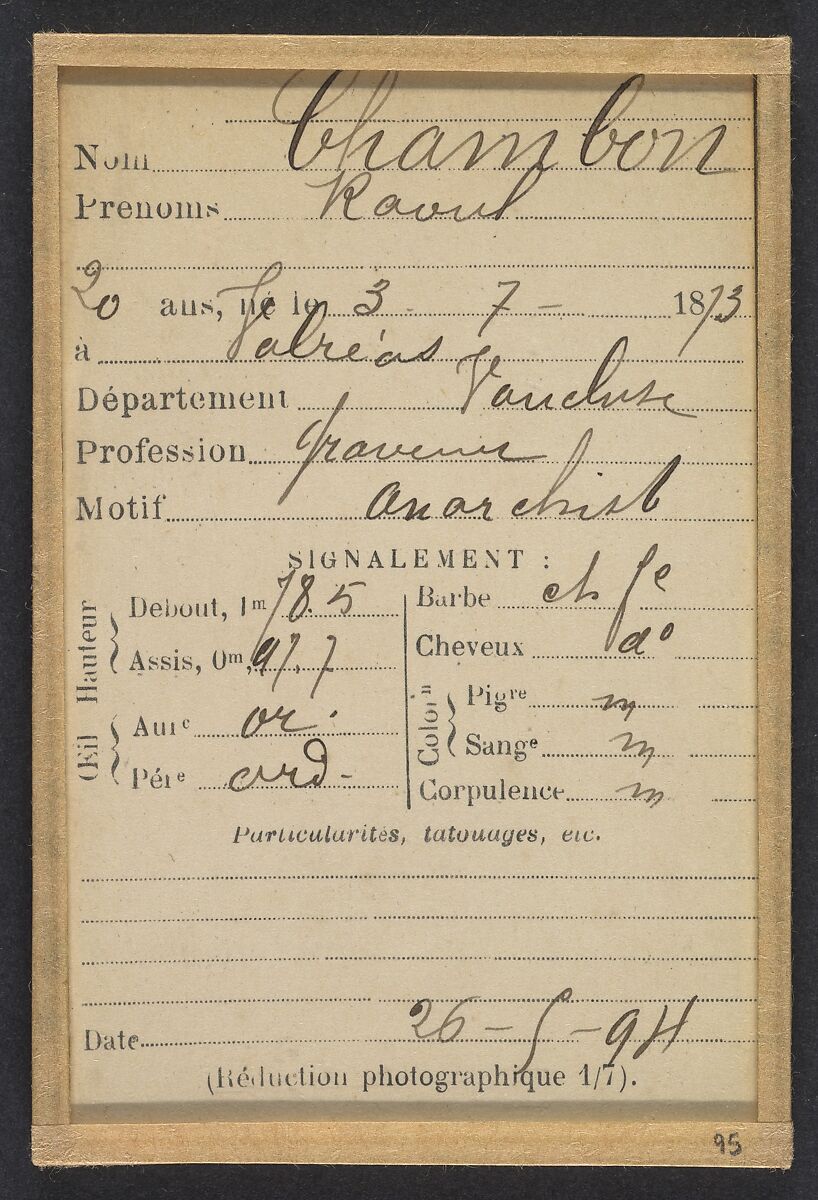 Nom Chambon
Prénoms Raoul
20 ans, né le 3 - 7 - 1873
à Valréas
Département Vaucluse
Profession graveur
Motif anarchist
SIGNALEMENT :
Hauteur
Debout, 1m 78.5
Assis, 0m, 97.7
Œil
Aure or.
Pére ord -
Barbe ch fe
Cheveux do
Color n
Pigre m
Sange m
Corpulence m
Particularités, tatouages, etc.
Date 26 - 5 - 94
(Réduction photographique 1/7).
95